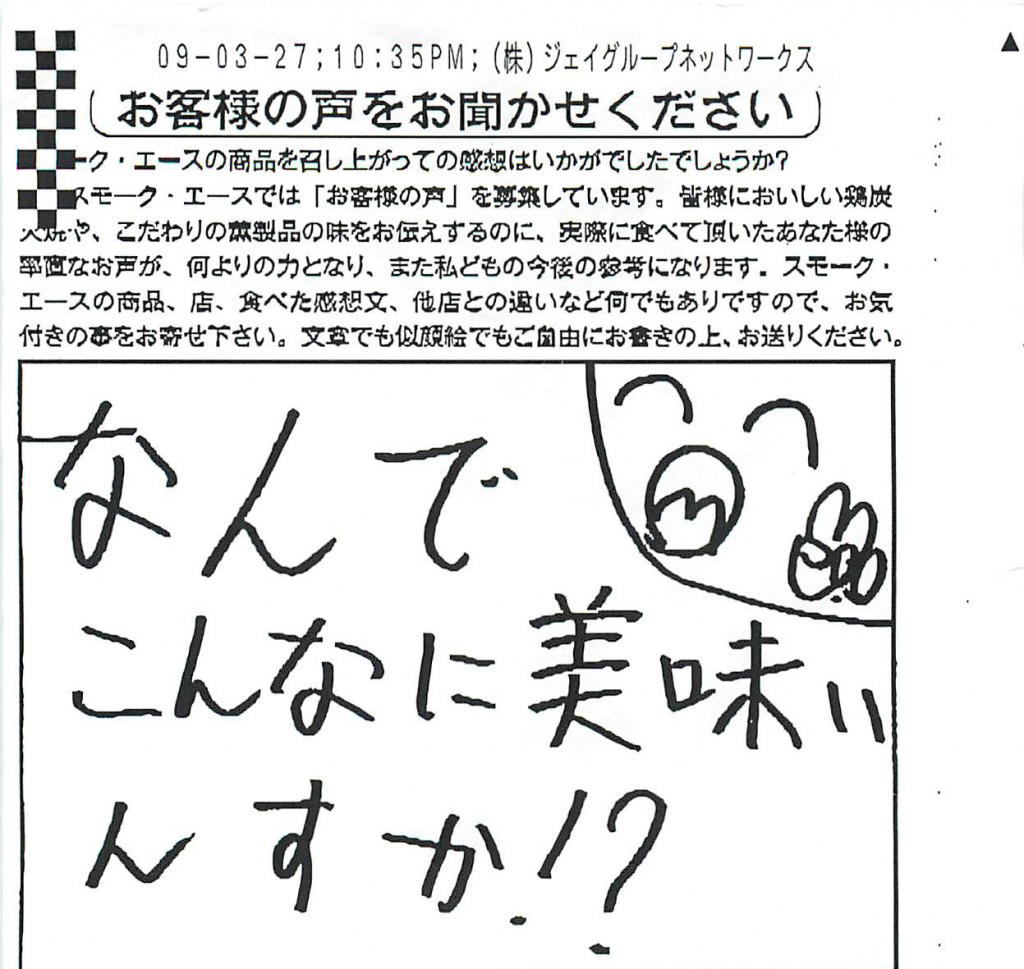 09-03-27;10:35PM;(株)ジェイグループネットワークス
お客様の声をお聞かせください
ーク・エースの商品を召し上がっての感想はいかがでしたでしょうか?
スモーク・エースでは「お客様の声」を募集しています。皆様においしい鶏炭
火焼や、こだわりの燻製品の味をお伝えするのに、実際に食べて頂いたあなた様の
率直なお声が、何よりの力となり、また私どもの今後の参考になります。スモーク・
エースの商品、店、食べた感想文、他店との違いなど何でもありですので、お気
付きの事をお寄せ下さい。文章でも似顔絵でもご自由にお書きの上、お送りください。
なんで
こんなに美味い
んすか!?